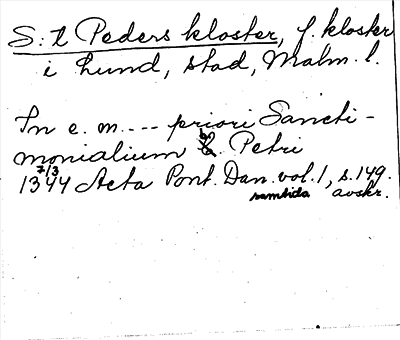 S:t Peders kloster, f. kloster
i Lund, stad, Malm. l.
In e. m. ... priori Sancti-
monialium b. Petri
7/3
1344 Acta Pont. Dan. vol. 1, s. 149.
samtida avskr.